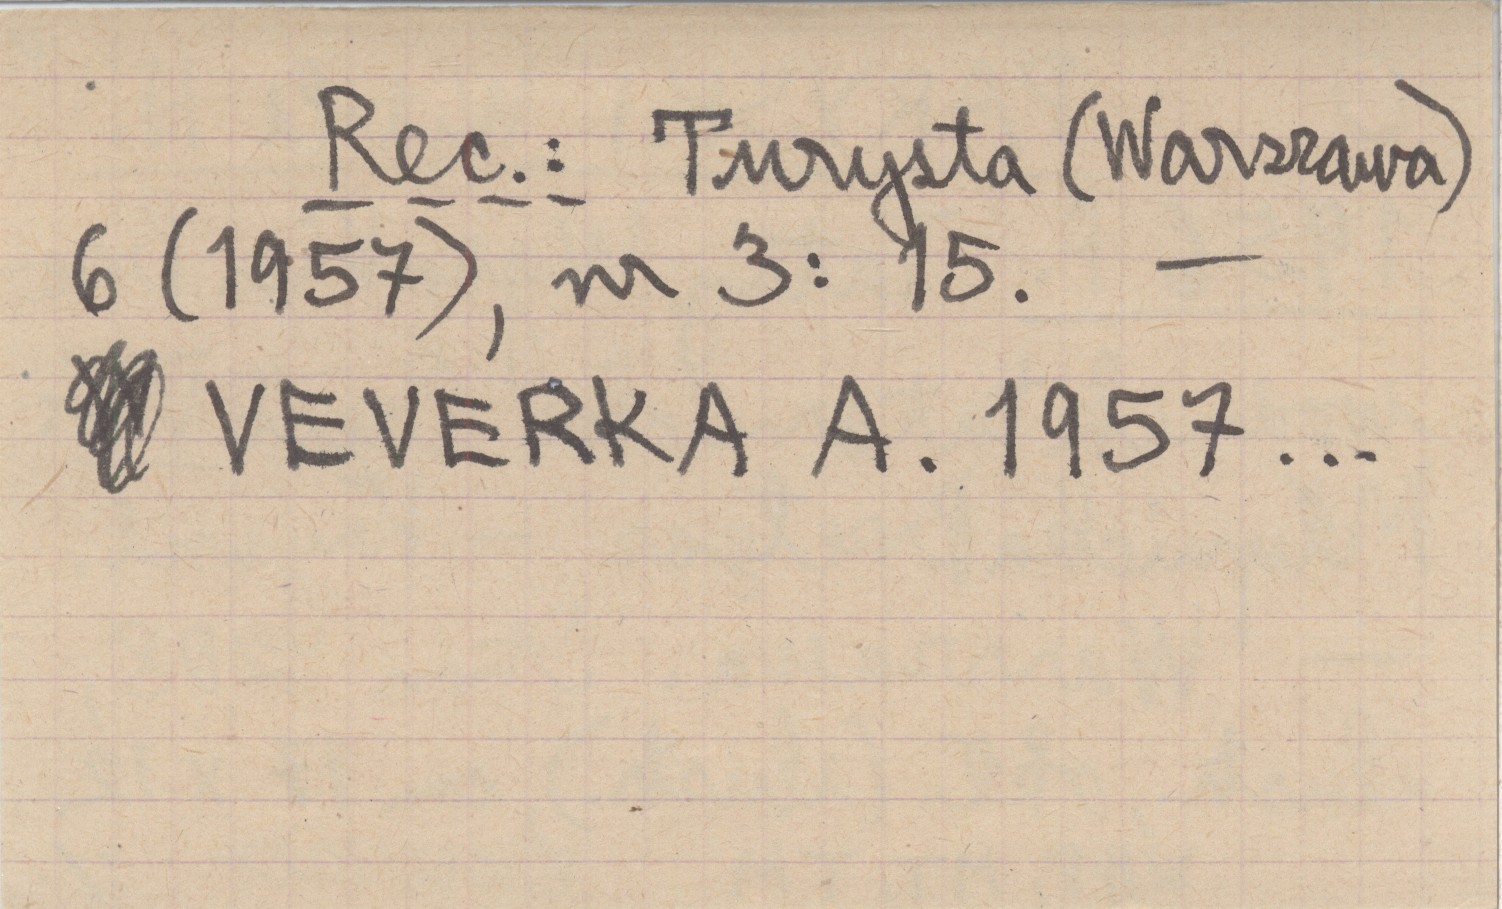 Rec.: Turysta (Warszawa)
6 (1957), nr 3: 15. —
VEVERKA A. 1957...